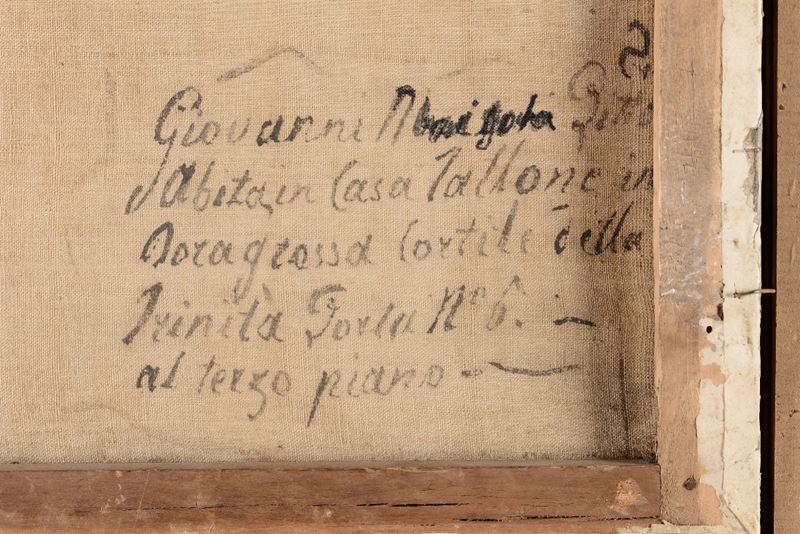 Giovanni
Abita in Casa Tallone in
Doragrossa Cortile della
Trinità Porta N.º 6.
al terzo piano